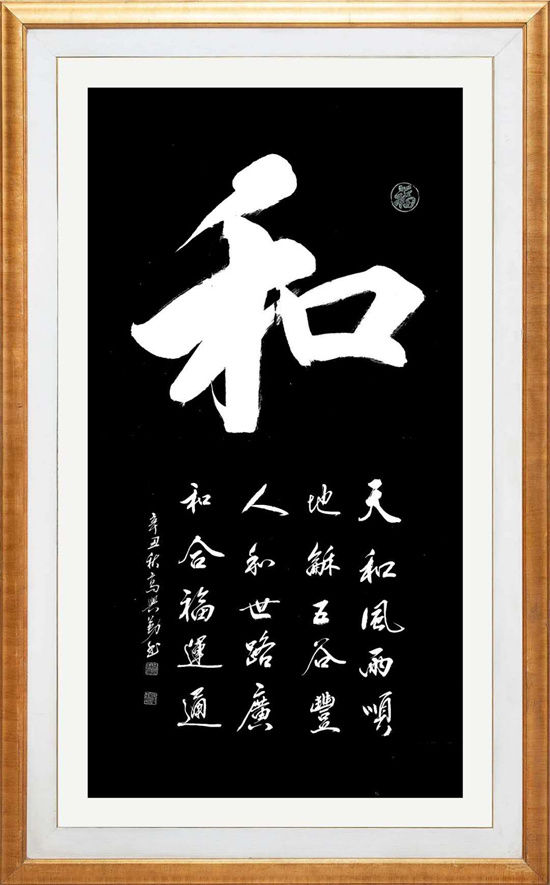 和
天和風雨順
地龢五谷豐
人和世路廣
和合福運通
辛丑秋高興勤書